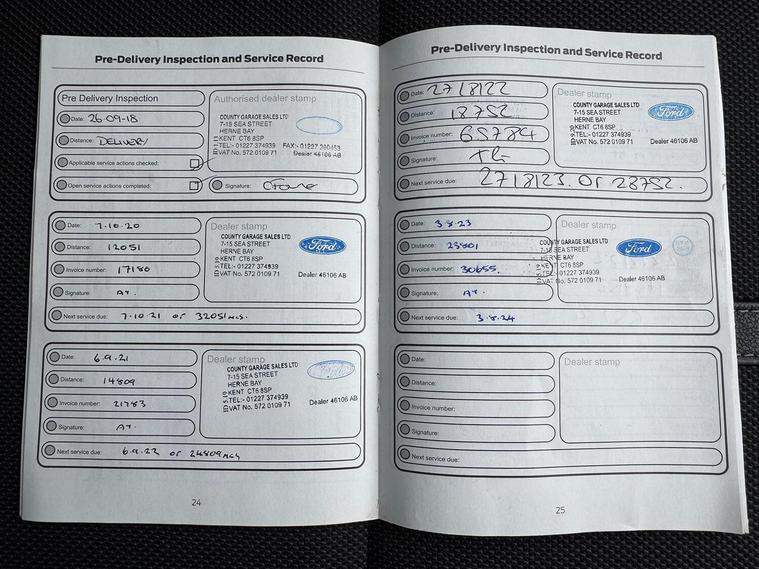 Pre-Delivery Inspection and Service Record
Pre Delivery Inspection
Date: 26-09-18
Distance: DELIVERY
Applicable service actions checked:
Open service actions completed:
Authorised dealer stamp
COUNTY GARAGE SALES LTD
7-15 SEA STREET
HERNE BAY
KENT CT6 8SP
TEL:- 01227 374939
VAT No. 572 0109 71
Dealer 46106 AB
Signature:
Date: 7.10.20
Distance: 12051
Invoice number: 17180
Signature: AT.
Next service due: 7.10.21 or 32051
Dealer stamp
COUNTY GARAGE SALES LTD
7-15 SEA STREET
HERNE BAY
KENT CT6 8SP
TEL:- 01227 374939
VAT No. 572 0109 71
Ford
Dealer 46106 AB
Date: 6.9.21
Distance: 14809
Invoice number: 21783
Signature: AT.
Next service due: 6.9.22 or 24809
Dealer stamp
COUNTY GARAGE SALES LTD
7-15 SEA STREET
HERNE BAY
KENT CT6 8SP
TEL:- 01227 374939
VAT No. 572 0109 71
Dealer 46106 AB
24
Pre-Delivery Inspection and Service Record
Date: 27/8/22
Distance: 18752
Invoice number: 65784
Signature:
Next service due: 27/8/23. Or 28752.
Dealer stamp
COUNTY GARAGE SALES LTD
7-15 SEA STREET
HERNE BAY
KENT CT6 8SP
TEL:- 01227 374939
VAT No. 572 0109 71
Ford
Dealer 46106 AB
Date: 3.8.23
Distance: 23801
Invoice number: 30655.
Signature: AT.
Next service due: 3.8.24
Dealer stamp
COUNTY GARAGE SALES LTD
7-15 SEA STREET
HERNE BAY
KENT CT6 8SP
TEL:- 01227 374939
VAT No. 572 0109 71
Ford
Dealer 46106 AB
Date:
Distance:
Invoice number:
Signature:
Next service due:
Dealer stamp
25